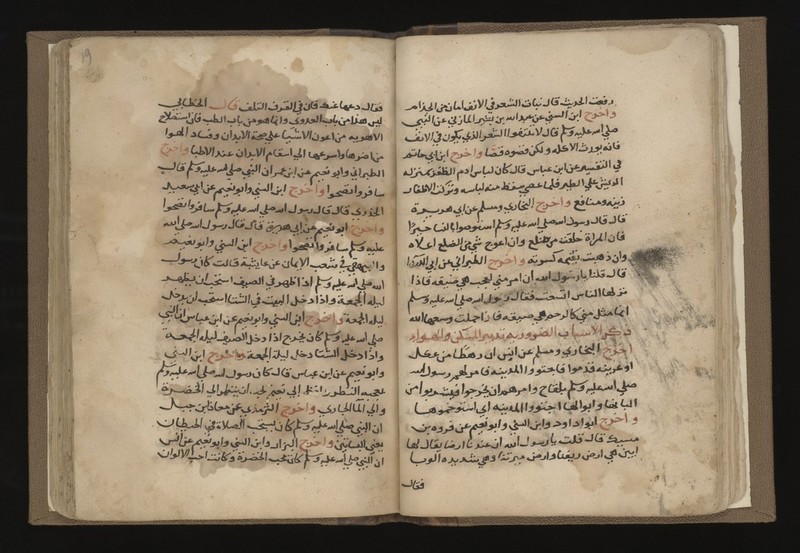 دفعت الحديث قال نبات الشعر في الانف امان من الجذام
واخرج ابن السني عن عبد الله بن بشر المازني عن النبي
صلى الله عليه وسلم قال لا تنتفوا الشعر الذي يكون في الانف
فانه يورث الاكله ولكن قصوه قصا واخرج ابن ابي حاتم
في التفسير عن ابن عباس قال كان لباس ادم الظفر بمنزله
الريش على الطير فلما عصى سقط عنه لباسه وتركت الاظفار
زينه ومنافع واخرج البخاري ومسلم عن ابي هريرة
قال قال رسول الله صلى الله عليه وسلم استوصوا بالنسا خيرا
فان المراة خلقت من ضلع وان اعوج شي في الضلع اعلاه
وان ذهبت تقيمه كسرته واخرج الطبراني عن ابي الدردا
قال قلنا يا رسول الله
نزلها الناس اتسعت فقال رسول الله صلى الله عليه وسلم
انما مثل منى كالرحم هي ضيقه فاذا حملت وسعها الله
ذكر الاسباب الضرورية تدبير المسكن والهواء
اخرج البخاري ومسلم عن انس ان رهطا من عكل
او عرينه قدموا فاجتووا المدينه فامر لهم رسول الله
صلى الله عليه وسلم بلقاح وامرهم ان يخرجوا فيشربوا من
البانها وابوالها اجتووا المدينه اي استوخموها
واخرج ابو داود وابن السني وابو نعيم عن فروه بن
مسيك قال قلت يا رسول الله ان عندنا ارضا يقال لها
ابين هي ارض ريفنا وارض ميرتنا وهي شديده الوبا
فقال
19
فقال دعها عنك فان في القرف التلف قال الخطابي
ليس هذا من باب العدوى وانما هو من باب الطب فان استصلاح
الاهويه من اعون الاشيا على صحة الابدان وفساد الهوا
من اضرها واسرعها الى اسقام الابدان عند الاطبا واخرج
الطبراني وابو نعيم عن ابن عمر ان النبي صلى الله عليه وسلم قال
سافروا تصحوا واخرج ابن السني وابو نعيم عن ابي سعيد
الخدري قال قال رسول الله صلى الله عليه وسلم سافروا تصحوا
واخرج ابو نعيم عن ابي هريرة قال قال رسول الله صلى الله
عليه وسلم سافروا تصحوا واخرج ابن السني وابو نعيم
والبيهقي في شعب الايمان عن عايشة قالت كان رسول
الله صلى الله عليه وسلم اذا ظهر في الصيف استحب ان يظهر
ليله الجمعة واذا دخل البيت في الشتا استحب ان يدخل
ليله الجمعة واخرج ابن السني وابو نعيم عن ابن عباس ان النبي
صلى الله عليه وسلم كان يخرج اذا دخل الصيف ليله الجمعة
واذا دخل الشتا دخل ليلة الجمعة واخرج ابن السني
وابو نعيم عن ابن عباس قال كان رسول الله صلى الله عليه وسلم
ان ينظر الى الخضرة
والى الما الجاري واخرج الترمذي عن معاذ بن جبل
ان النبي صلى الله عليه وسلم كان يستحب الصلاة في الحيطان
يعني البساتين واخرج البزار وابن السني وابو نعيم عن انس
ان النبي صلى الله عليه وسلم كان يحب الخضرة وكانت احب الالوان